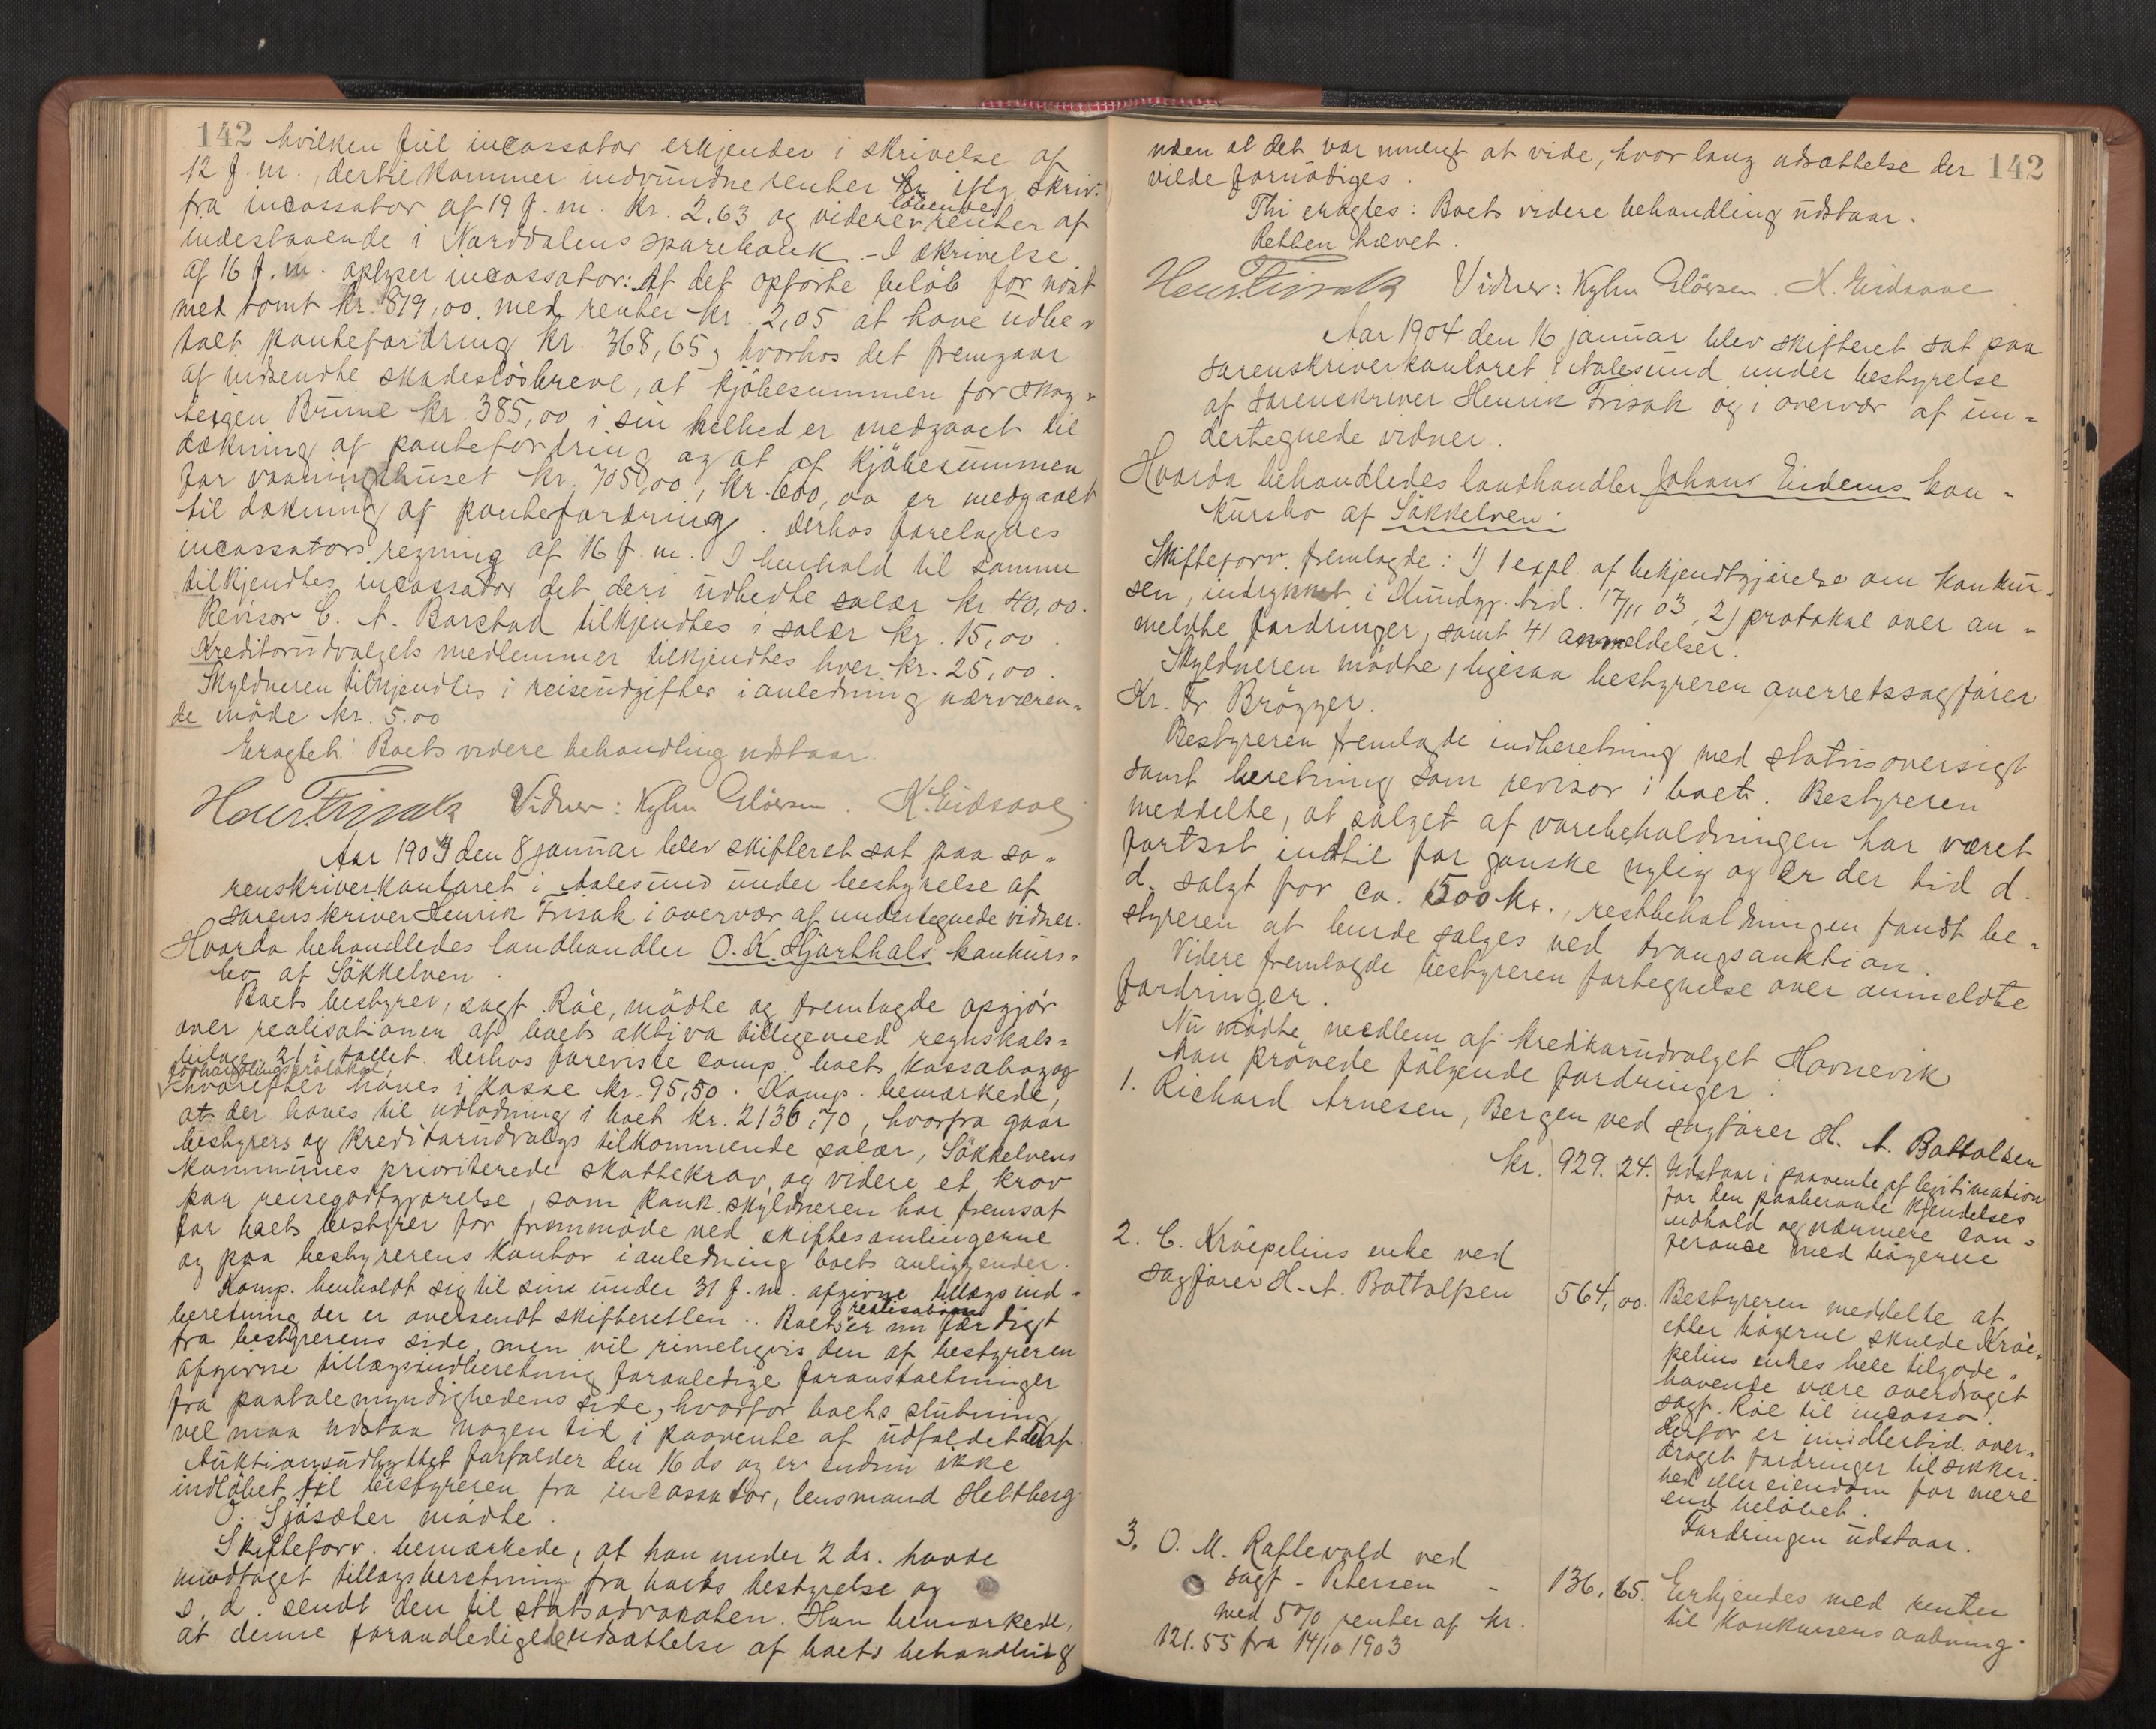 142 hvilken feil incassator erkjender i skrivelse af
12 f. m., dertil kommer indvundne renter iflg. skriv.
fra incassator af 19 f. m. kr. 2.63 og videre løbende renter af
indestaaende i Norddalens sparebank. - I skrivelse
af 16 f. m. oplyser incassator: At det opførte beløb for nøst
med tomt kr. 819,00 med renter kr. 2,05 at have udbe-
talt pantefordring kr. 368,65, hvorhos det fremgaar
af indsendte skadesløsbreve, at kjøbesummen for skog-
teigen Brune kr. 385,00 i sin helhed er medgaaet til
dækning af pantefordring og at af kjøbesummen
for vaaningshuset kr. 7050,00, kr. 600,00 er medgaaet
til dækning af pantefordring. Derhos forelagdes
incassators regning af 16 f. m. I henhold til samme
tilkjendtes incassator det deri udbedte salær kr. 40,00.
Revisor C. A. Barstad tilkjendtes i salær kr. 15,00.
Kreditorudvalgets medlemmer tilkjendtes hver kr. 25,00.
Skyldneren tilkjendtes i reiseudgifter i anledning nærværen-
de møde kr. 5.00
Eragtet: Boets videre behandling udstaar.
Henr. Frisak Vidner: Kyhn Gløersen. K. Eidsaae
Aar 1904 den 8 januar blev skifteret sat paa so-
renskriverkontoret i Aalesund under bestyrelse af
sorenskriver Henrik Frisak i overvær af undertegnede vidner.
Hvorda behandledes landhandler O. K. Hjorthals konkurs-
bo af Søkkelven.
Boets bestyrer, sagf. Røe, mødte og fremlagde opgjør
over realisationen af boets aktiva tilligemed regnskabs-
bilage 21 i tallet. Derhos foreviste comp. boets kassabog og
forhandlingsprotokol,
hvorefter haves i kasse kr. 95,50. Komp. bemærkede,
at der haves til udlodning i boet kr. 2136,70, hvorfra gaar
bestyrers og kreditorudvalgs tilkommende salær, Søkkelvens
kommunes prioriterede skattekrav, og videre et krav
paa reisegodtgjørelse, som konk. skyldneren har fremsat
for boets bestyrer for fremmøde ved skiftesamlingerne
og paa bestyrerens kontor i anledning boets anliggender.
Komp. henholdt sig til sine under 31 f. m. afgivne tillægsind-
beretning der er oversendt skifteretten. Boets realisation er nu færdigt
fra bestyrerens side, men vil rimeligvis den af bestyreren
afgivne tillægsindberetning foranledige foranstaltninger
fra paatalemyndighedens side, hvorfor boets slutning
vel maa udstaa nogen tid i paavente af udfaldet deraf.
Auktionsudbyttet forfalder den 16 ds og er endnu ikke
indløbet til bestyreren fra incassator, lensmand Heltberg.
O. Sjøsæter mødte.
Skifteforv. bemærkede, at han under 2 ds. havde
modtaget tillægsberetning fra boets bestyrelse og
s. d. sendt den til statsadvokaten. Han bemærkede,
at denne forandledigede udsættelse af boets behandling
uden at det var muligt at vide, hvor lang udsættelse der 142
vilde fornødiges.
Thi eragtes: Boets videre behandling udstaar.
Retten hævet.
Henr. Frisak Vidner: Kyhn Gløersen. K. Eidsaae
Aar 1904 den 16 januar blev skifteret sat paa
sorenskriverkontoret i Aalesund under bestyrelse
af sorenskriver Henrik Frisak og i overvær af un-
dertegnede vidner.
Hvorda behandledes landhandler Johans Eidems kon-
kursbo af Søkkelven.
Skifteforv. fremlagde: 1) 1 expl. af bekjendtgjørelse om konkur-
sen, indrykket i Kundgj. tid. 17/11 03, 2) protokol over an-
meldte fordringer, samt 41 anmeldelser.
Skyldneren mødte, ligesaa bestyreren overretssagfører
Kr. Fr. Brøgger.
Bestyreren fremlagde indberetning med statusoversigt
samt beretning som revisor i boet. Bestyreren
meddelte, at salget af varebeholdningen har været
fortsat indtil for ganske nylig og er der tid d.
d. solgt for ca. 1500 kr., restbeholdningen fandt be-
styreren at burde sælges ved tvangsauktion.
Videre fremlagde bestyreren fortegnelse over anmeldte
fordringer.
Nu mødte medlem af kreditorudvalget Havnevik
Man prøvede følgende fordringer:
1. Richard Arnesen, Bergen ved sagfører H. A. Bottolfsen
kr. 929.24. Udstaar i paavente af legitimation
for den paaberaabte kjendelses
indhold og nærmere con-
ferance med bøgerne
2. C. Krøepelins enke ved
sagfører H. A. Bottolfsen 564,00. Bestyreren meddelte at
efter bøgerne skulde Krøe-
pelins enkes hele tilgode-
havende være overdraget
sagf. Røe til incasso.
Derfor er imidlertid over-
draget fordringer til sikker-
hed eller eiendom for mere
end beløbet.
Fordringen udstaar.
3. O. M. Raftevold ved
sagf. Petersen - 136.65. Erkjendes med renter
med 5 % renter af kr. til konkursens aabning.
121.55 fra 14/10 1903